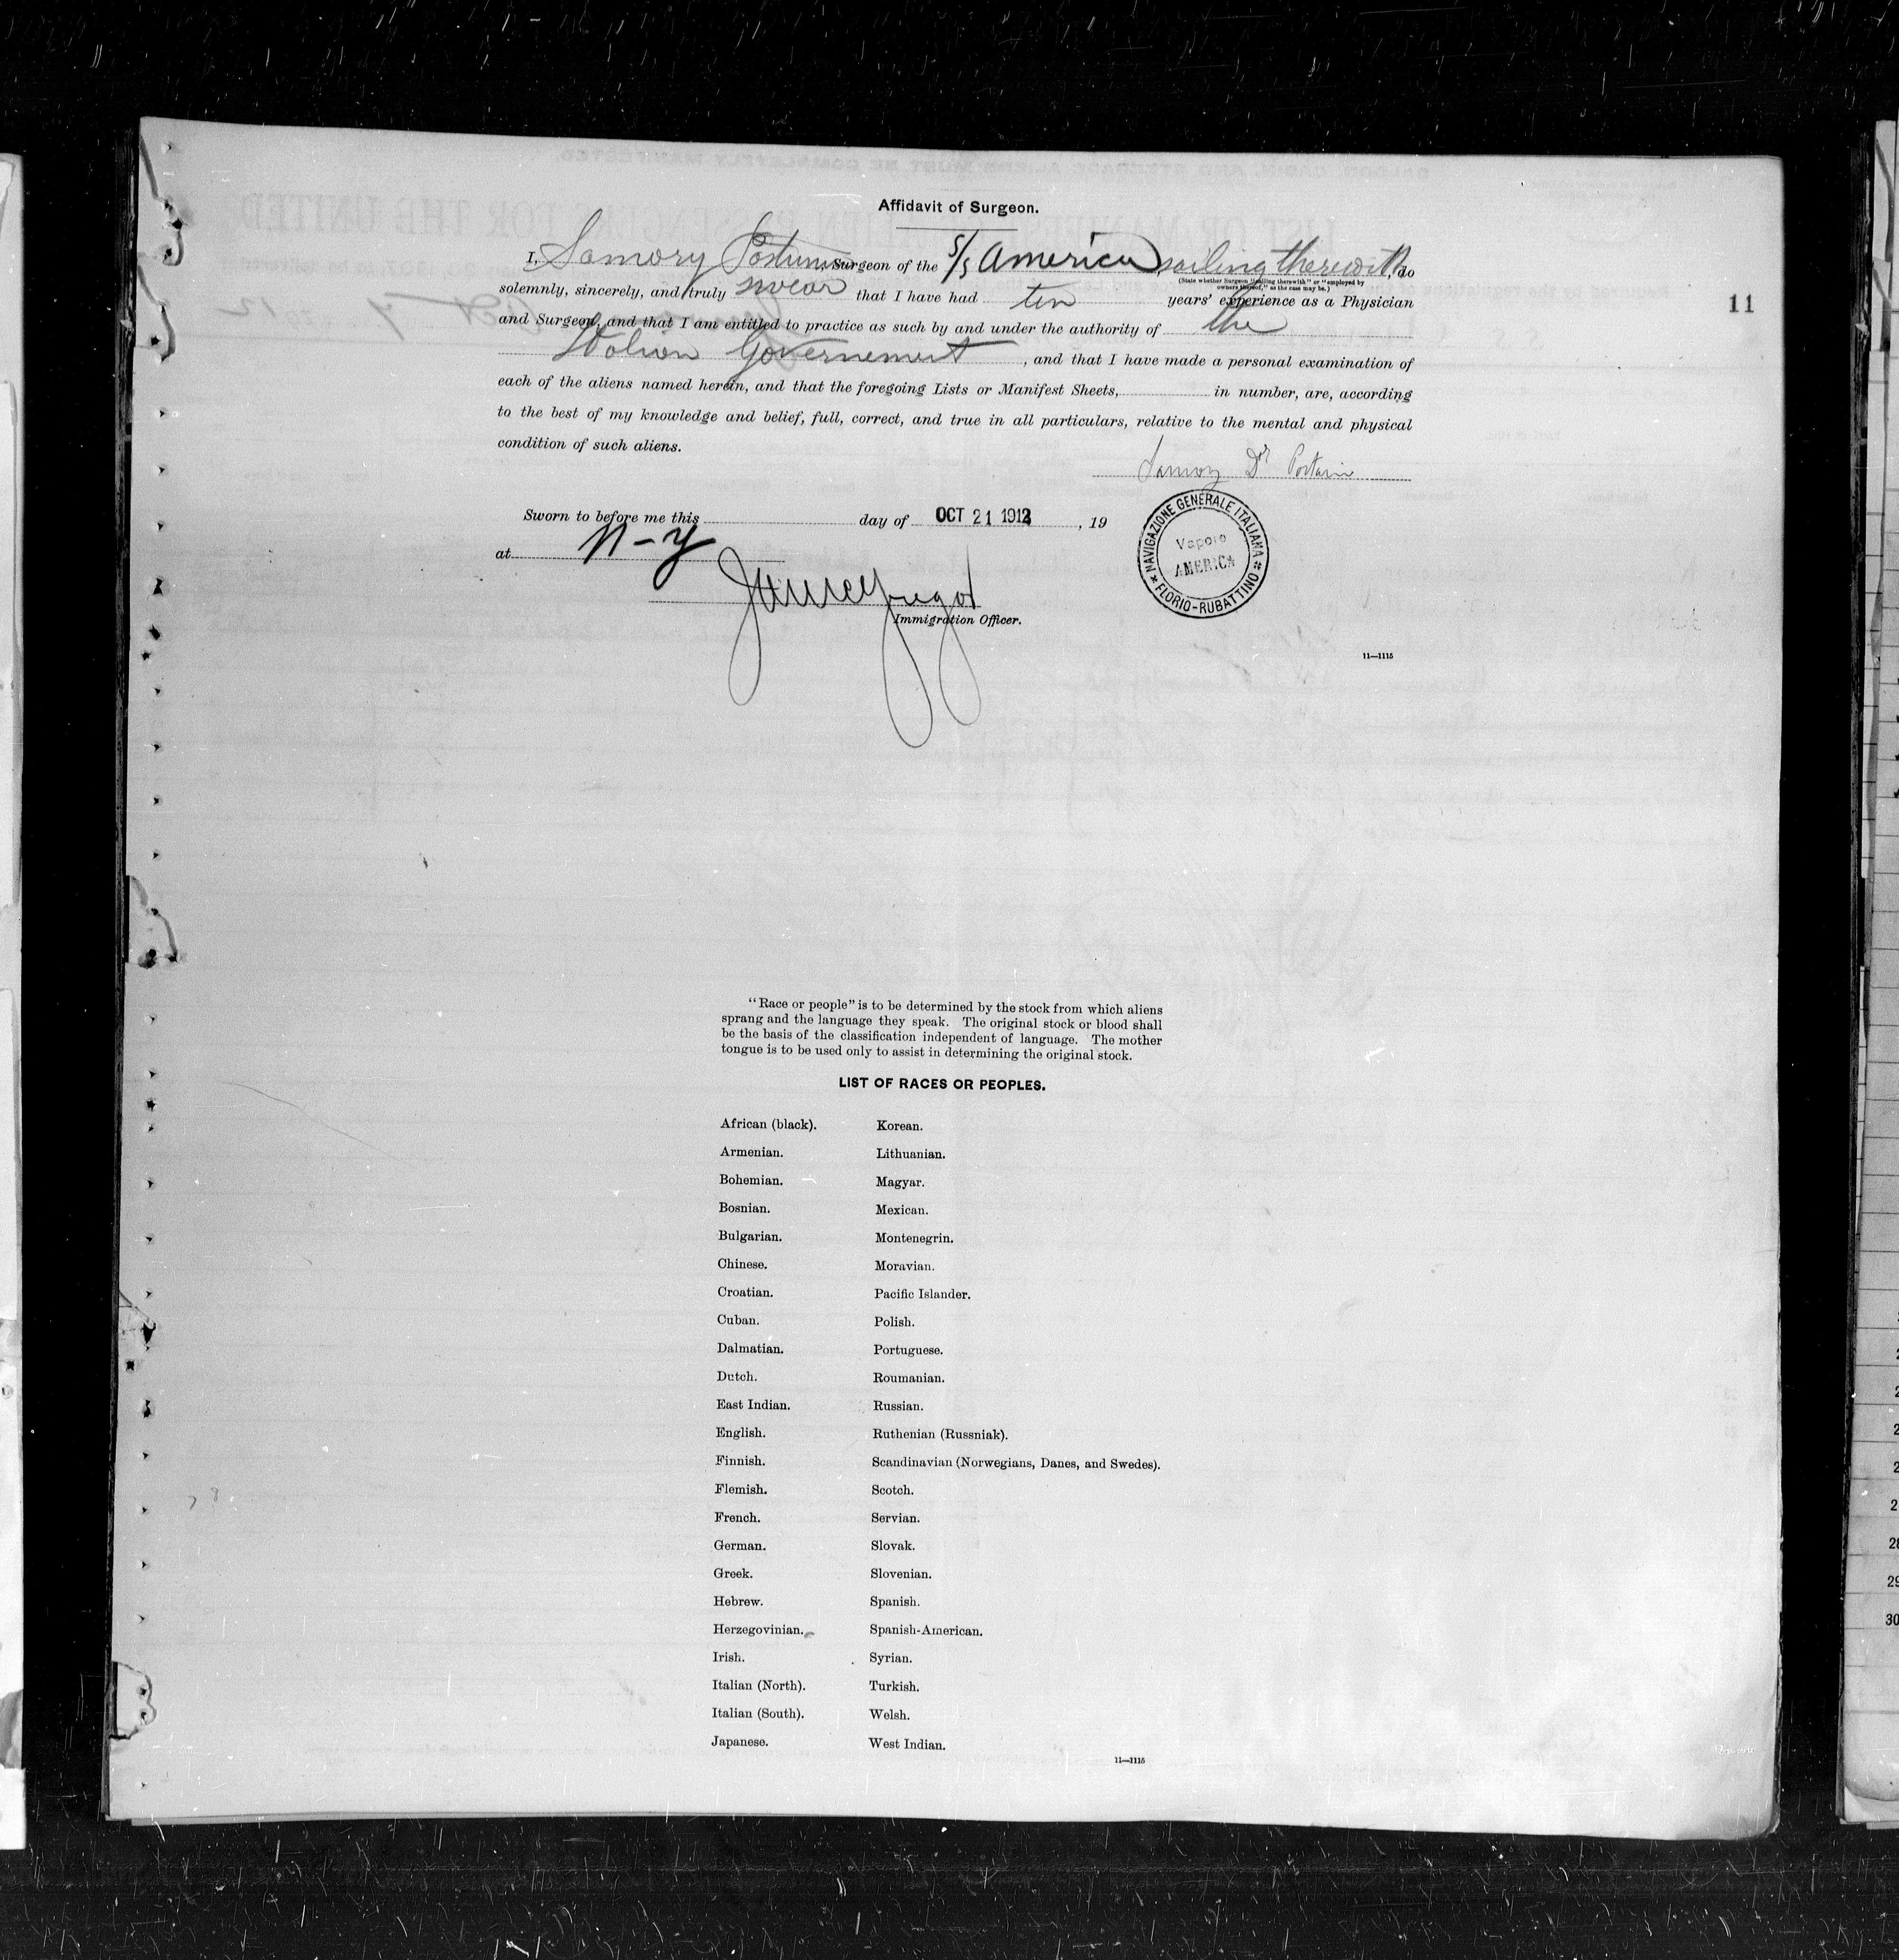 Affidavit of Surgeon.
11
I, Samory , Surgeon of the S/S America, sailing therewith, do
(State whether Surgeon "sailing therewith" or "employed by
owners thereof," as the case may be.)
solemnly, sincerely, and truly swear that I have had ten years' experience as a Physician
and Surgeon, and that I am entitled to practice as such by and under the authority of the
Italian Governement, and that I have made a personal examination of
each of the aliens named herein, and that the foregoing Lists or Manifest Sheets, in number, are, according
to the best of my knowledge and belief, full, correct, and true in all particulars, relative to the mental and physical
condition of such aliens.
Dr
Sworn to before me this day of OCT 21 1912, 19
at N-Y
Immigration Officer.
* NAVIGAZIONE GENERALE ITALIANA * FLORIO-RUBATTINO
Vapore
AMERICA
11—1115
"Race or people" is to be determined by the stock from which aliens
sprang and the language they speak. The original stock or blood shall
be the basis of the classification independent of language. The mother
tongue is to be used only to assist in determining the original stock.
LIST OF RACES OR PEOPLES.
African (black). Korean.
Armenian. Lithuanian.
Bohemian. Magyar.
Bosnian. Mexican.
Bulgarian. Montenegrin.
Chinese. Moravian.
Croatian. Pacific Islander.
Cuban. Polish.
Dalmatian. Portuguese.
Dutch. Roumanian.
East Indian. Russian.
English. Ruthenian (Russniak).
Finnish. Scandinavian (Norwegians, Danes, and Swedes).
Flemish. Scotch.
French. Servian.
German. Slovak.
Greek. Slovenian.
Hebrew. Spanish.
Herzegovinian. Spanish-American.
Irish. Syrian.
Italian (North). Turkish.
Italian (South). Welsh.
Japanese. West Indian.
11—1115
28
29
30